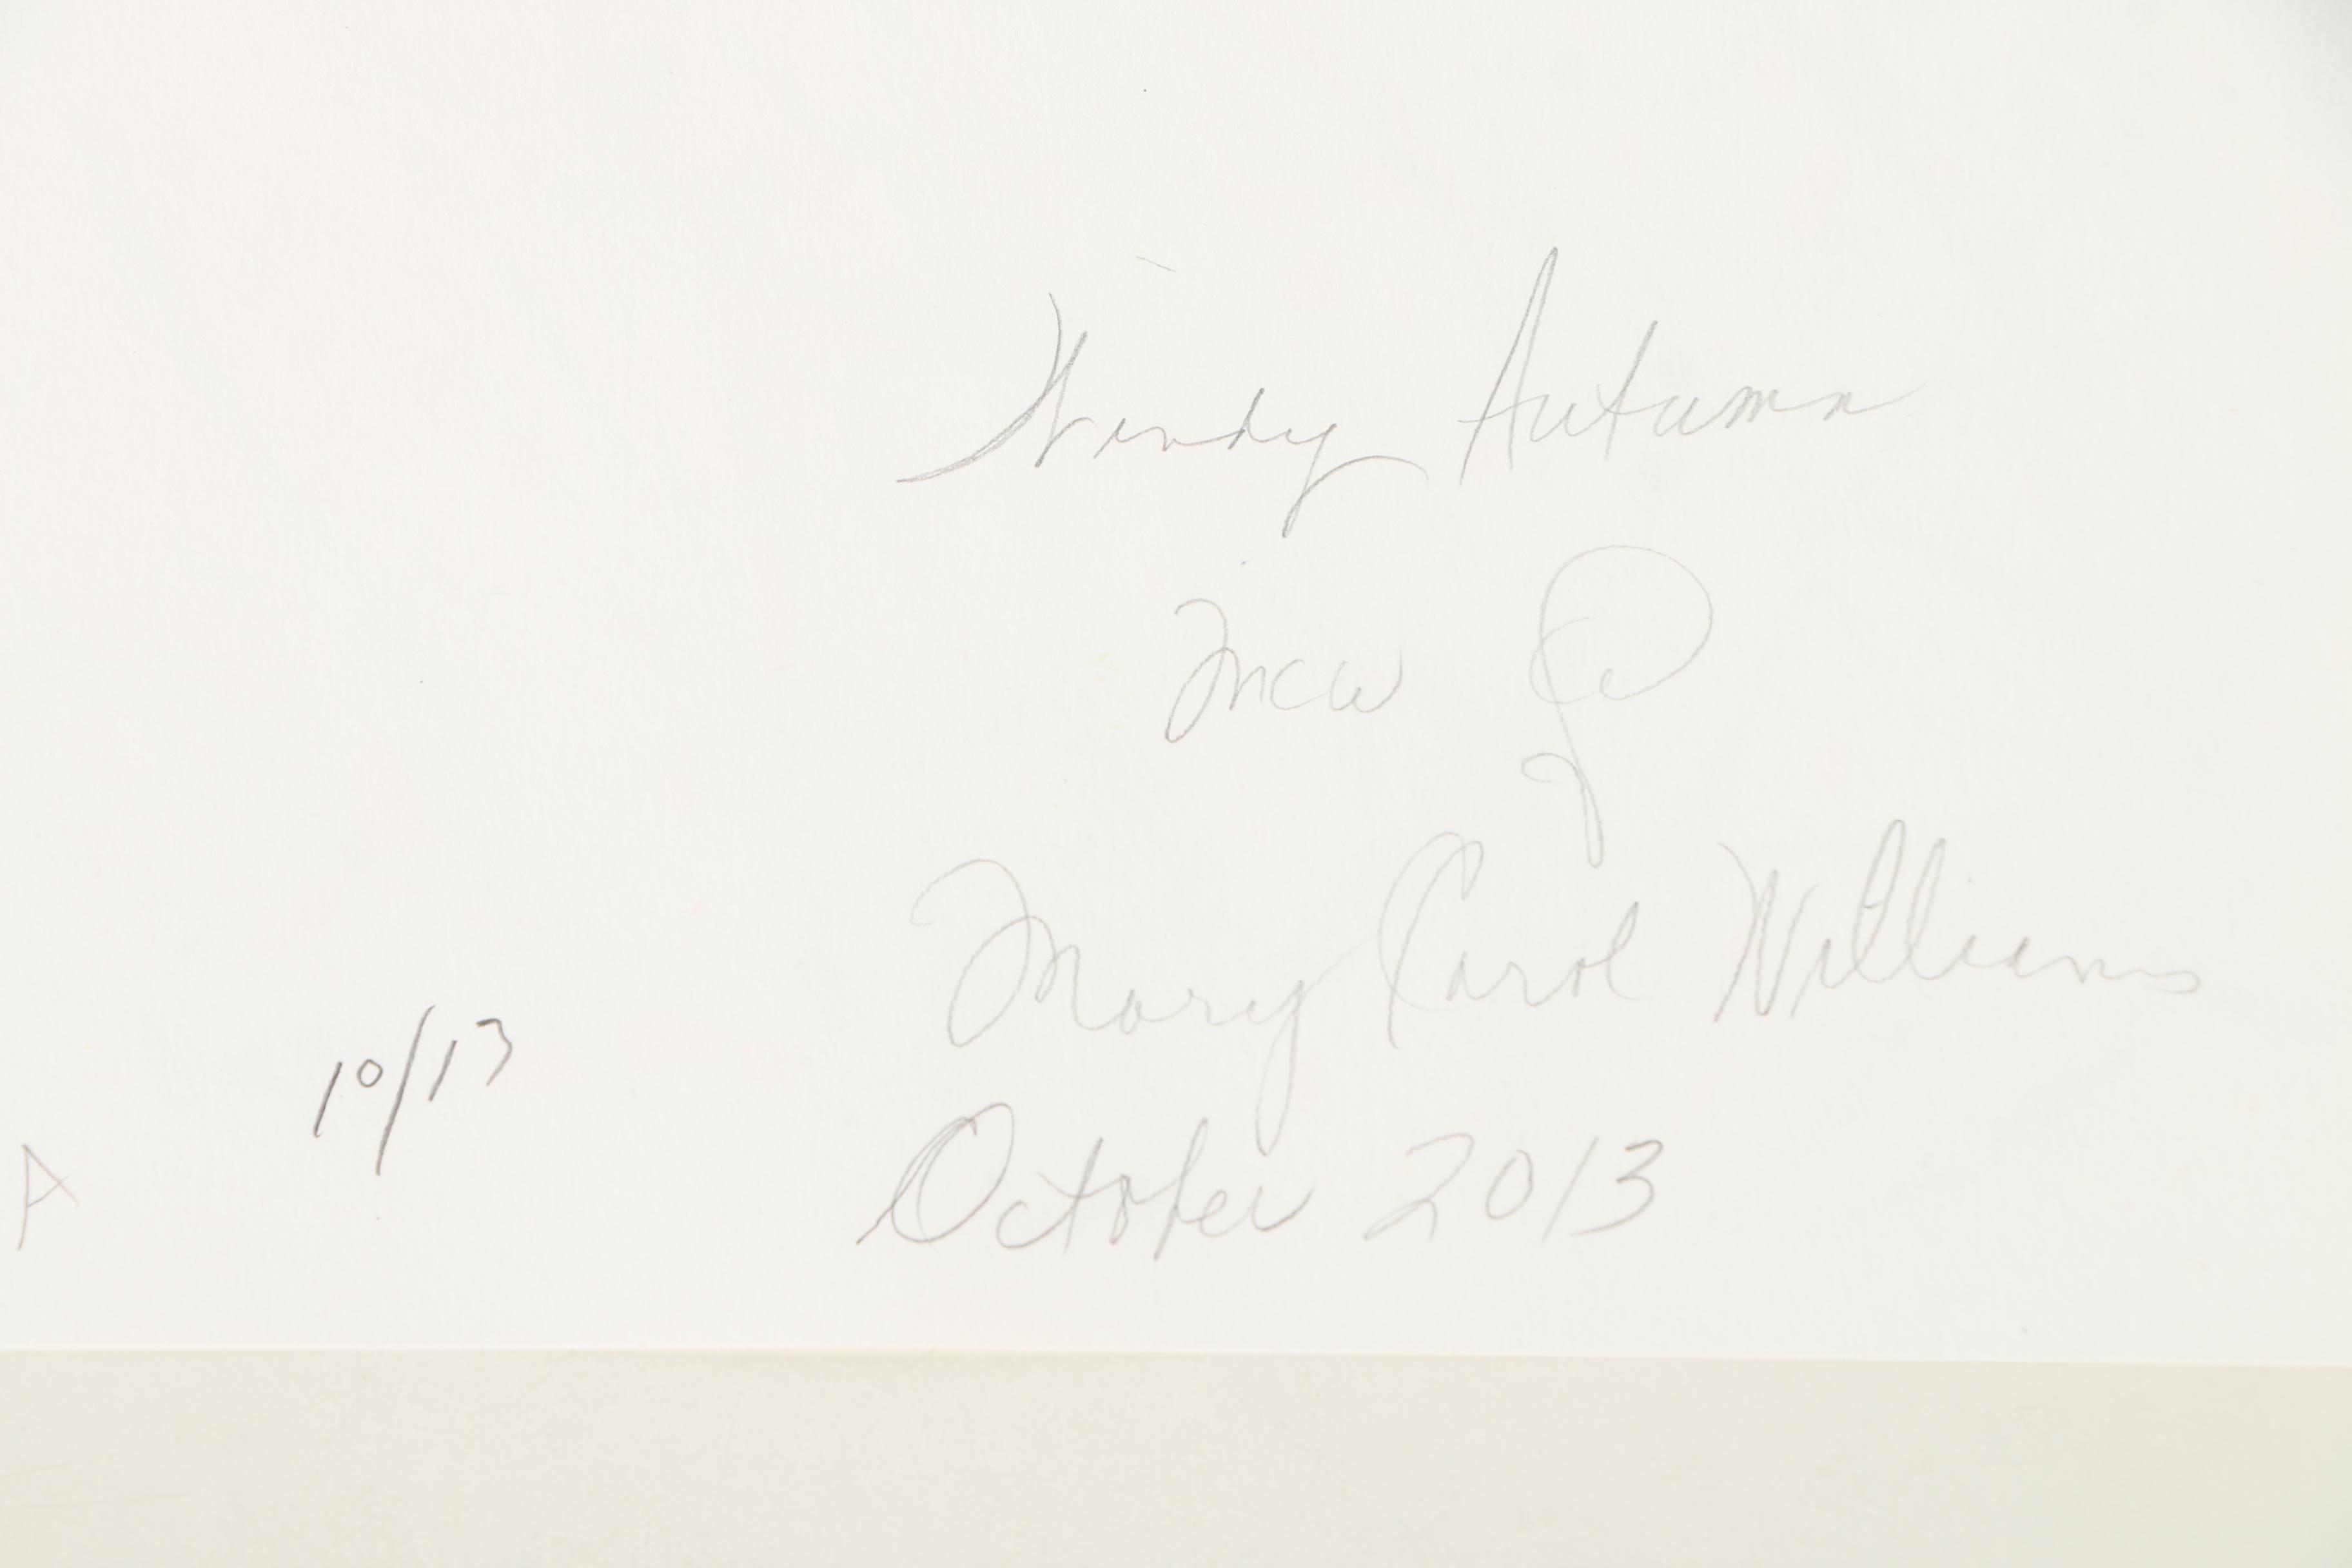 Windy Autumn
MCW
Mary Carol Williams
10/13
October 2013
A